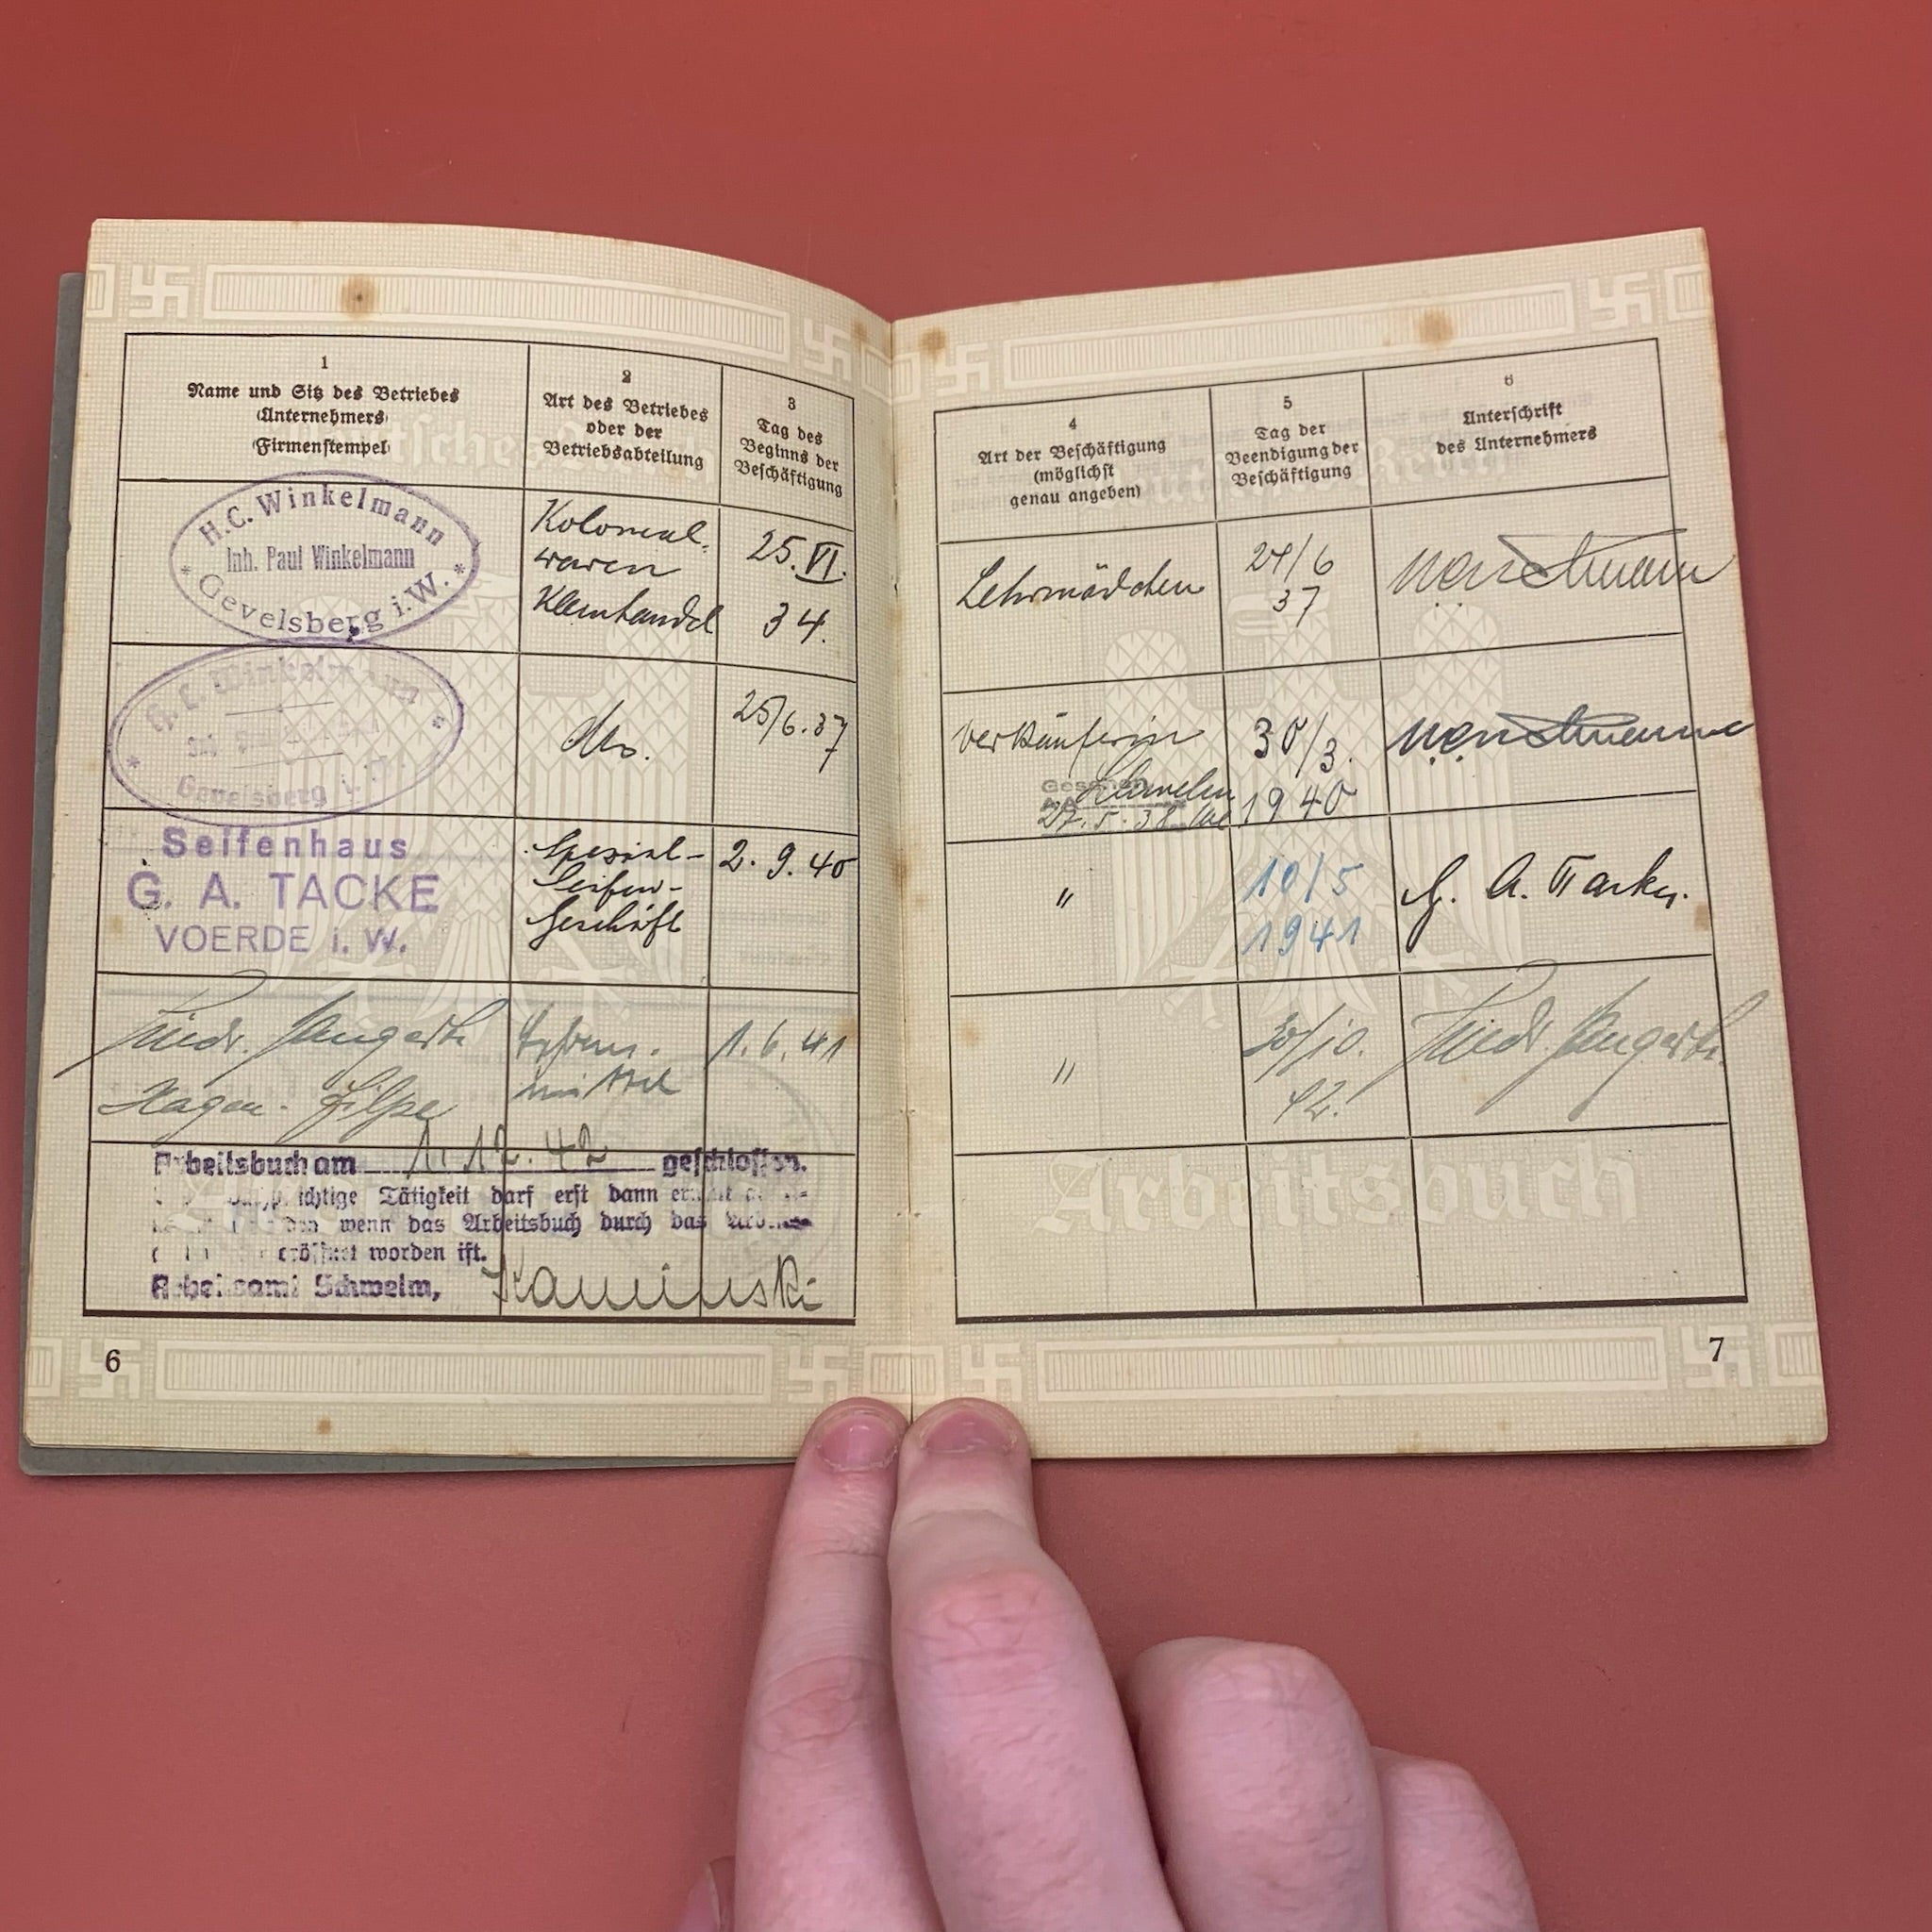 1
Name und Sitz des Betriebes
(Unternehmers)
(Firmenstempel)
2
Art des Betriebes
oder der
Betriebsabteilung
3
Tag des
Beginns der
Beschäftigung
H.C. Winkelmann
Inh. Paul Winkelmann
* Gevelsberg i.W. *
Kolonial-
waren
Kleinhandel
25. VI.
34.
H. C. Winkelmann
Gevelsberg i. W.
do.
25/6.37
Seifenhaus
G. A. TACKE
VOERDE i. W.
Spezial-
Seifen-
Geschäft
2. 9. 40
Friedr.
Hagen-
1.6.41
Arbeitsbuch am 1. 12. 42 geschlossen.
Tätigkeit darf erst dann
wenn das Arbeitsbuch durch das
eröffnet worden ist.
Arbeitsamt Schwelm, Kaminski
6
4
Art der Beschäftigung
(möglichst
genau angeben)
5
Tag der
Beendigung der
Beschäftigung
6
Unterschrift
des Unternehmers
Lehrmädchen
24/6
37
Verkäuferin
30/3.
1940
27. 5. 38
"
10/5
1941
G. A. Tacke.
"
30/10.
42.
Friedr.
Arbeitsbuch
7